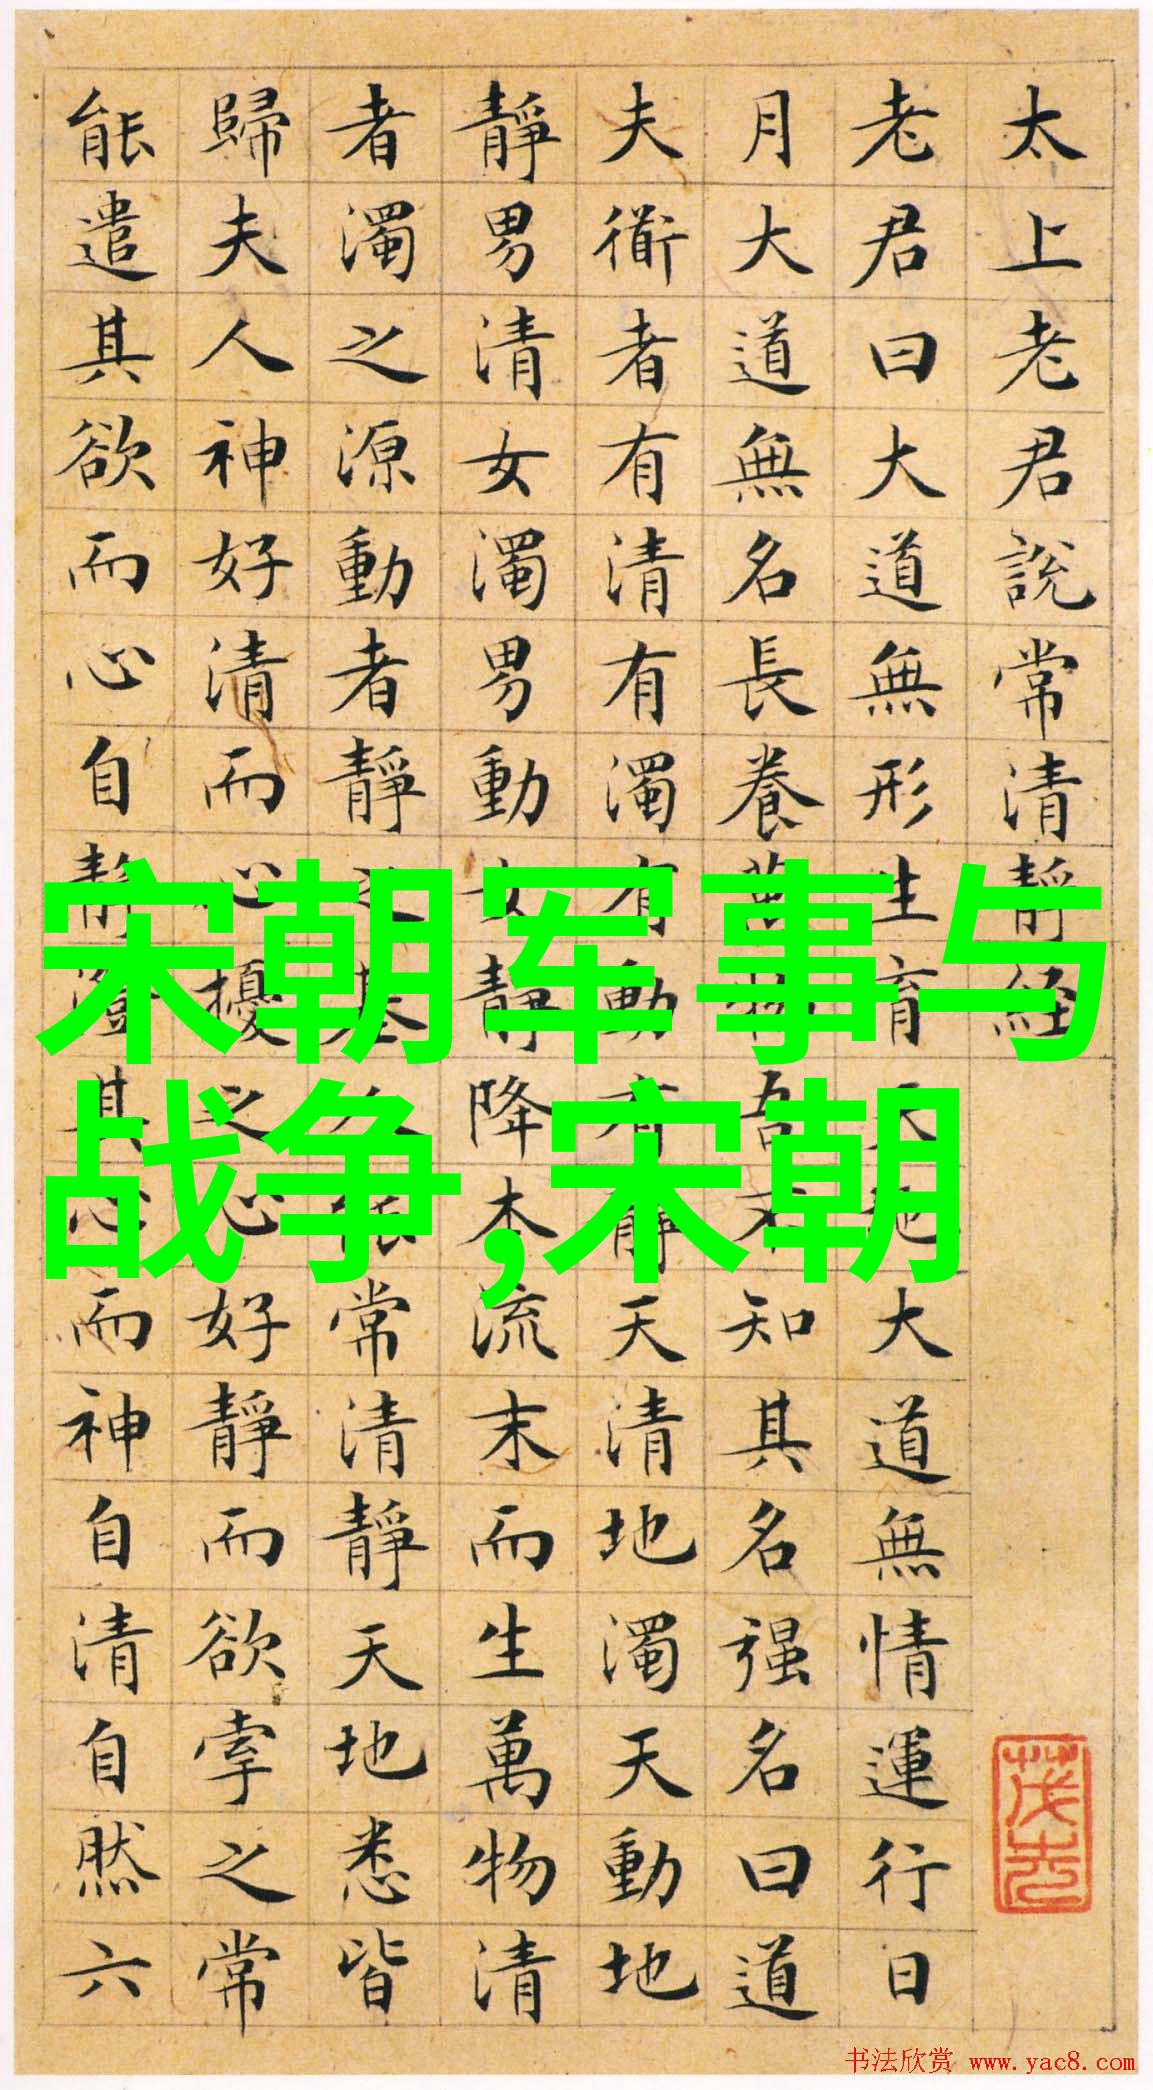 太上老君說常清靜経
老君曰大道無形生育天地大道無情運行日
月大道無名長養萬物吾不知其名强名曰道
夫衜者有清有濁有動有靜天清地濁天動地
靜男清女濁男動女靜降本流末而生萬物清
者濁之源動者靜之基人能常清靜天地悉皆
歸夫人神好清而心擾之心好靜而欲牽之常
能遣其欲而心自靜澄其心而神自清自然六
宋朝军事与
战争,宋朝
书法欣赏 www.yac8.com